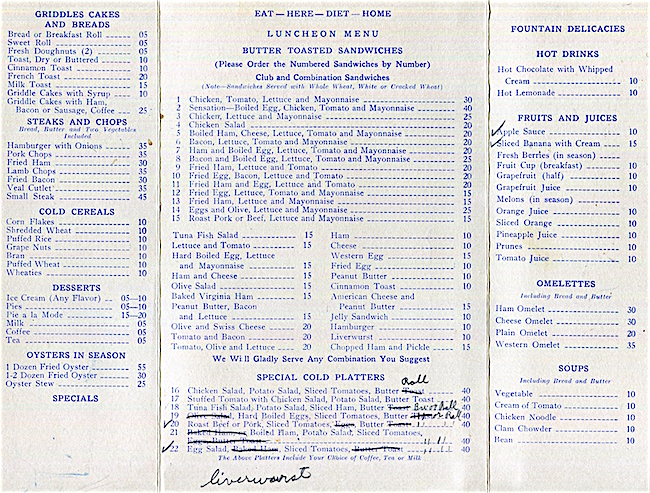 GRIDDLES CAKES
AND BREADS
Bread or Breakfast Roll 05
Sweet Roll 05
Fresh Doughnuts (2) 05
Toast, Dry or Buttered 10
Cinnamon Toast 10
French Toast 20
Milk Toast 15
Griddle Cakes with Syrup 10
Griddle Cakes with Ham,
Bacon or Sausage, Coffee 25
STEAKS AND CHOPS
Bread, Butter and Two Vegetables
Included
Hamburger with Onions 35
Pork Chops 35
Fried Ham 30
Lamb Chops 35
Fried Bacon 30
Veal Cutlet 35
Small Steak 45
COLD CEREALS
Corn Flakes 10
Shredded Wheat 10
Puffed Rice 10
Grape Nuts 10
Bran 10
Puffed Wheat 10
Wheaties 10
DESSERTS
Ice Cream (Any Flavor) 05—10
Pies 05—10
Pie a la Mode 15—20
Milk 05
Coffee 05
Tea 05
OYSTERS IN SEASON
1 Dozen Fried Oyster 55
1-2 Dozen Fried Oyster 30
Oyster Stew 25
SPECIALS
EAT—HERE—DIET—HOME
LUNCHEON MENU
BUTTER TOASTED SANDWICHES
(Please Order the Numbered Sandwiches by Number)
Club and Combination Sandwiches
(Note—Sandwiches Served with Whole Wheat, White or Cracked Wheat)
1 Chicken, Tomato, Lettuce and Mayonnaise 30
2 Sensation—Boiled Egg, Chicken, Tomato and Mayonnaise 40
3 Chicken, Lettuce and Mayonnaise 25
4 Chicken Salad 20
5 Boiled Ham, Cheese, Lettuce, Tomato and Mayonnaise 20
6 Bacon, Lettuce, Tomato and Mayonnaise 20
7 Ham and Boiled Egg, Lettuce, Tomato and Mayonnaise 20
8 Bacon and Boiled Egg, Lettuce, Tomato and Mayonnaise 25
9 Fried Ham, Lettuce and Tomato 20
10 Fried Egg, Bacon, Lettuce and Tomato 20
11 Fried Ham and Egg, Lettuce and Tomato 20
12 Fried Egg, Lettuce, Tomato and Mayonnaise 15
13 Fried Ham, Lettuce and Mayonnaise 15
14 Eggs and Olive, Lettuce and Mayonnaise 25
15 Roast Pork or Beef, Lettuce and Mayonnaise 15
Tuna Fish Salad 15
Lettuce and Tomato 15
Hard Boiled Egg, Lettuce
and Mayonnaise 15
Ham and Cheese 15
Olive Salad 15
Baked Virginia Ham 15
Peanut Butter, Bacon
and Lettuce 15
Olive and Swiss Cheese 20
Tomato and Bacon 20
Tomato, Olive and Lettuce 20
Ham 10
Cheese 10
Western Egg 15
Fried Egg 10
Peanut Butter 10
Cinnamon Toast 10
American Cheese and
Peanut Butter 15
Jelly Sandwich 10
Hamburger 10
Liverwurst 10
Chopped Ham and Pickle 15
We Will Gladly Serve Any Combination You Suggest
SPECIAL COLD PLATTERS
Roll
16 Chicken Salad, Potato Salad, Sliced Tomatoes, Butter Toast 40
17 Stuffed Tomato with Chicken Salad, Potato Salad, Butter Toast 40
18 Tuna Fish Salad, Potato Salad, Sliced Ham, Butter Toast 40
19 Olive Salad, Hard Boiled Eggs, Sliced Tomatoes, Butter
20 Roast Beef or Pork, Sliced Tomatoes, Eggs, Butter Toast 40
21 Baked Ham, Boiled Ham, Potato Salad, Sliced Tomatoes,
Butter Toast 40
22 Egg Salad, Baked Ham, Sliced Tomatoes, Butter Toast 40
The Above Platters Include Your Choice of Coffee, Tea or Milk
liverwurst
FOUNTAIN DELICACIES
HOT DRINKS
Hot Chocolate with Whipped
Cream 10
Hot Lemonade 10
FRUITS AND JUICES
Apple Sauce 10
Sliced Banana with Cream 15
Fresh Berries (in season)
Fruit Cup (breakfast) 10
Grapefruit (half) 10
Grapefruit Juice 10
Melons (in season)
Orange Juice 10
Sliced Orange 10
Pineapple Juice 10
Prunes 10
Tomato Juice 10
OMELETTES
Including Bread and Butter
Ham Omelet 30
Cheese Omelet 30
Plain Omelet 20
Western Omelet 35
SOUPS
Including Bread and Butter
Vegetable 10
Cream of Tomato 10
Chicken Noodle 10
Clam Chowder 10
Bean 10